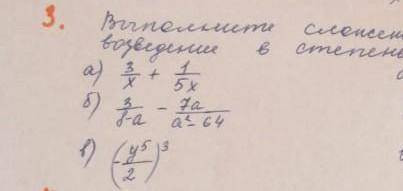 3. Выполните сложен
возведение в степен
а) 3/x + 1/5x
б) 3/8-a - 7a/a²- 64
в) (-y⁵/2)³